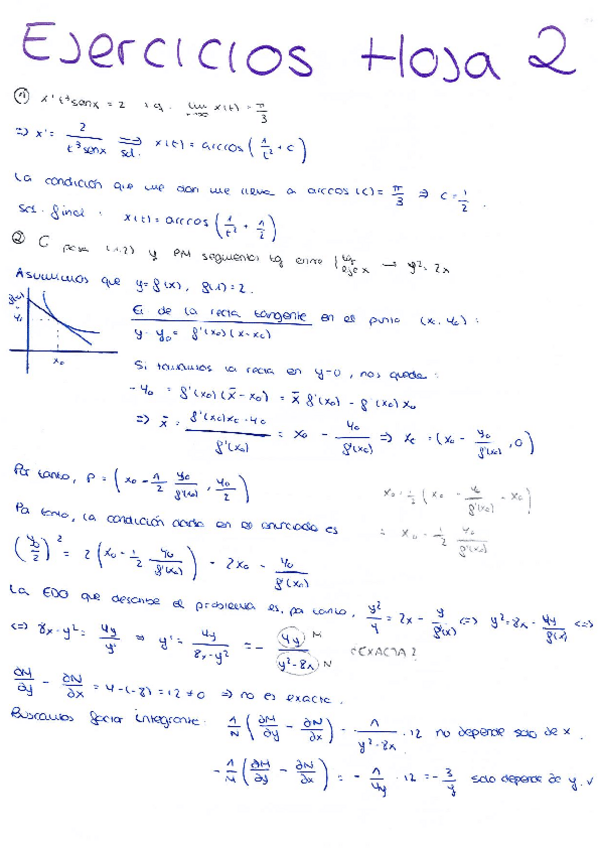 Ejercicios Hoja 2
① x' t³ senx = 2 t.q. lim x(t) = π/3
⇒ x' = 2/(t³ senx) ⇒ sol. x(t) = arccos(1/t² + c)
La condición que me dan me lleva a arccos(c) = π/3 ⇒ c = 1/2.
sol. final: x(t) = arccos(1/t² + 1/2)
② C pasa (1,2) y PM segmentos tg entre {tg ejex → y² = 2x
Asumimos que y = f(x), f(1) = 2.
Ec de la recta tangente en el punto (x₀, y₀):
y - y₀ = f'(x₀)(x - x₀)
x₀
Si tomamos la recta en y=0, nos queda:
-y₀ = f'(x₀)(x̄ - x₀) = x̄ f'(x₀) - f'(x₀)x₀
⇒ x̄ = (f'(x₀)x₀ - y₀)/f'(x₀) = x₀ - y₀/f'(x₀) ⇒ x₀ = (x₀ - y₀/f'(x₀), 0)
Por tanto, P = (x₀ - 1/2 y₀/f'(x₀), y₀/2)
x₀ + 1/2 (x₀ - y₀/f'(x₀) - x₀)
= x₀ - 1/2 y₀/f'(x₀)
Por tanto, la condición dada en el enunciado es
(y₀/2)² = 2(x₀ - 1/2 y₀/f'(x₀)) = 2x₀ - y₀/f'(x₀)
La EDO que describe el problema es, por tanto, y²/4 = 2x - y/f'(x) ⇔ y² = 8x - 4y/f'(x) ⇔
⇔ 8x - y² = 4y/y' ⇒ y' = 4y/(8x - y²) = - 4y/(y² - 8x) M N ¿EXACTA?
∂M/∂y - ∂N/∂x = 4 - (-8) = 12 ≠ 0 ⇒ no es exacta.
Buscamos factor integrante: 1/N (∂M/∂y - ∂N/∂x) = 1/(y² - 8x) · 12 no depende solo de x.
-1/M (∂M/∂y - ∂N/∂x) = - 1/4y · 12 = - 3/y solo depende de y. ✓